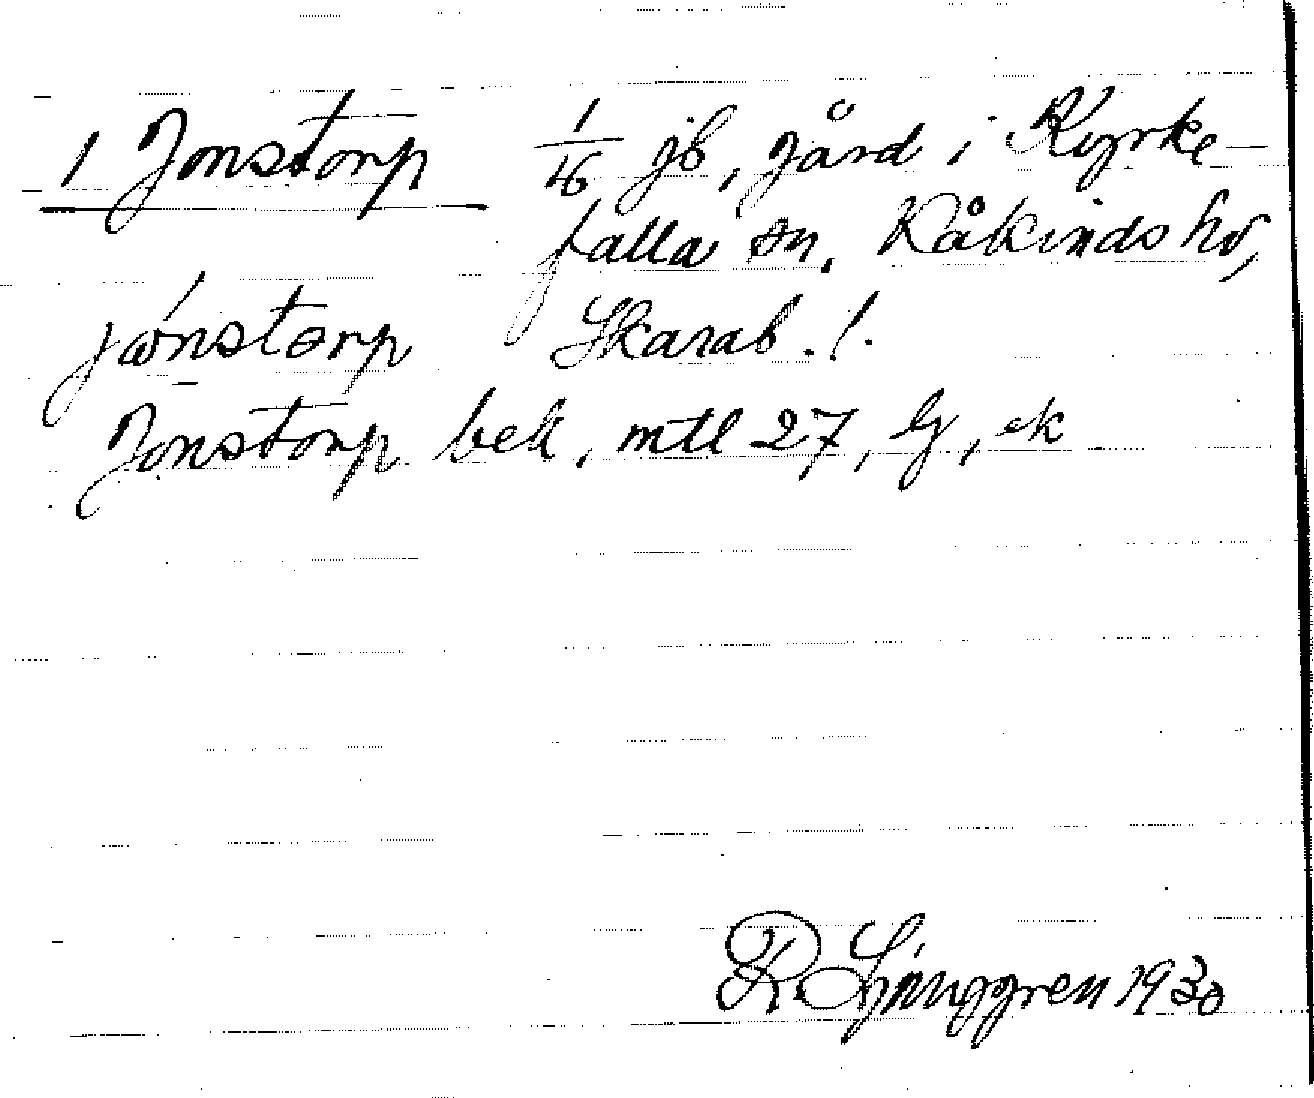 1 Jonstorp 1/16 jb, gård i Kyrke-
falla sn, Kåkinds hd,
jónstorp Skarab. l.
Jonstorp bek, mtl 27, lj, ek
R. Ljunggren 1930